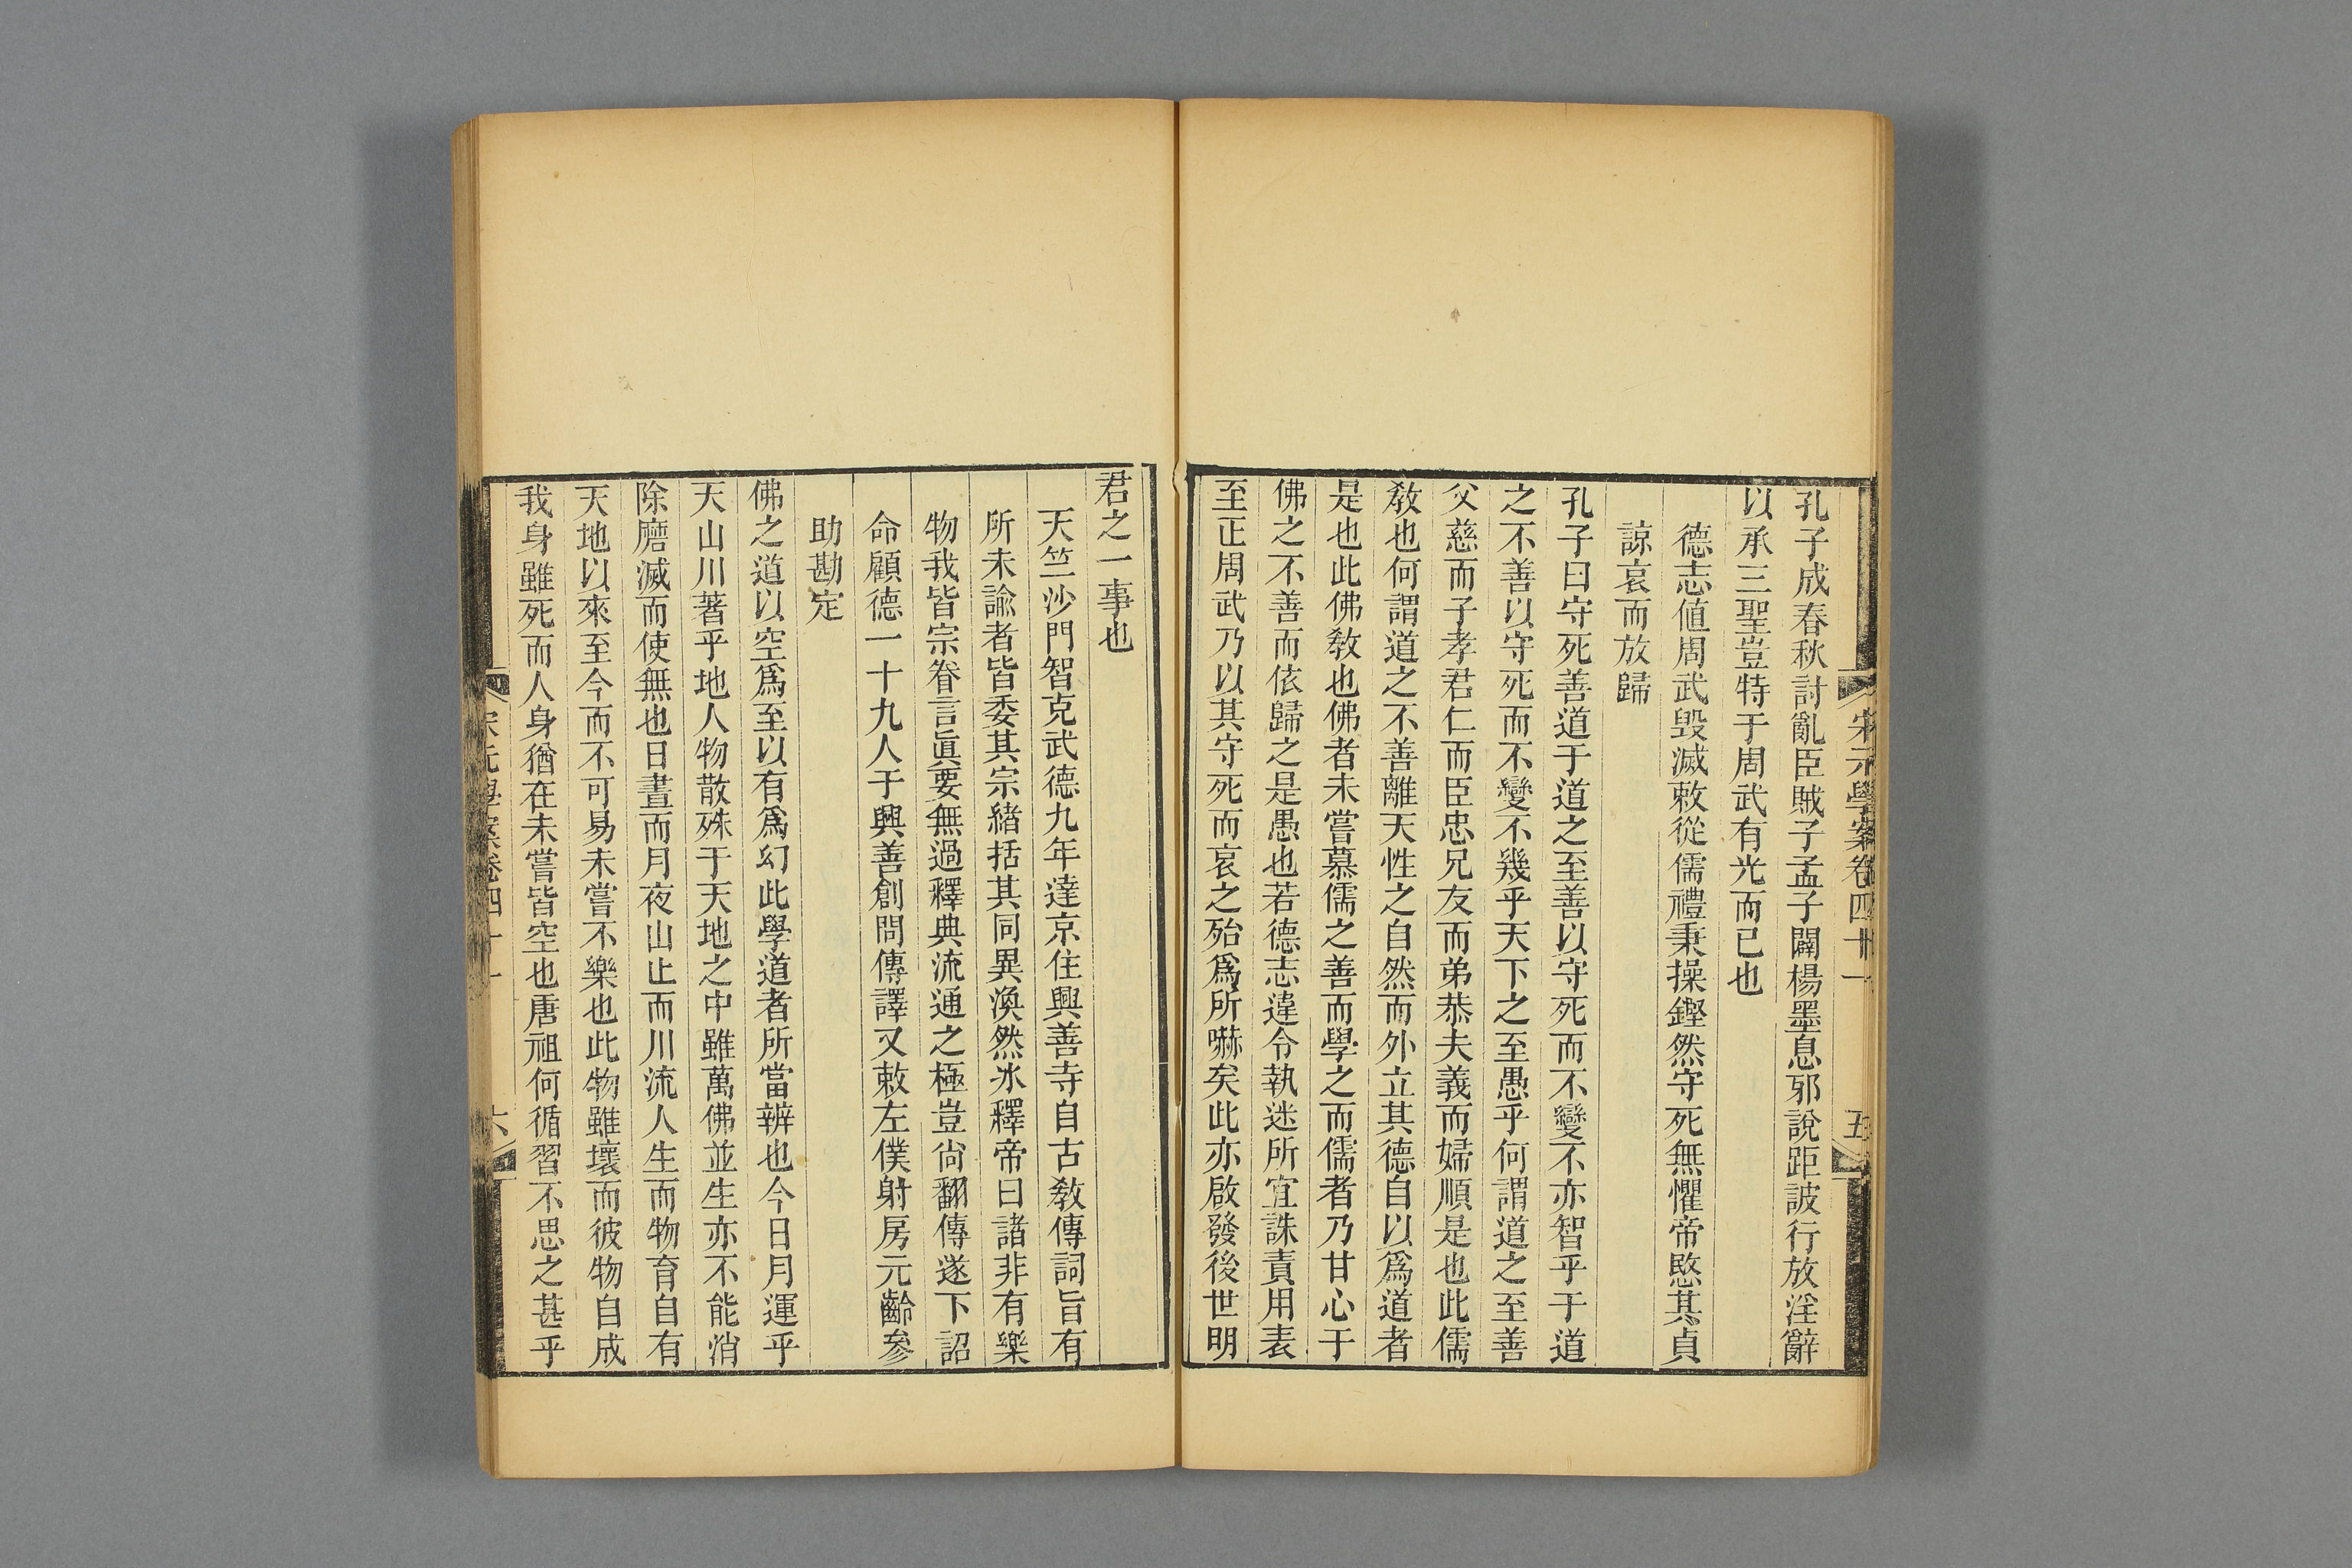 宋元學案卷四十一
五
孔子成春秋討亂臣賊子孟子闢楊墨息邪說距詖行放淫辭
以承三聖豈特于周武有光而已也
德志值周武毀滅敕從儒禮秉操鏗然守死無懼帝愍其貞
諒哀而放歸
孔子曰守死善道于道之至善以守死而不變不亦智乎于道
之不善以守死而不變不幾乎天下之至愚乎何謂道之至善
父慈而子孝君仁而臣忠兄友而弟恭夫義而婦順是也此儒
教也何謂道之不善離天性之自然而外立其德自以爲道者
是也此佛教也佛者未嘗慕儒之善而學之而儒者乃甘心于
佛之不善而依歸之是愚也若德志違令執迷所宜誅責用表
至正周武乃以其守死而哀之殆爲所嚇矣此亦啟發後世明
君之一事也
天竺沙門智克武德九年達京住興善寺自古教傳詞旨有
所未諭者皆委其宗緒括其同異渙然冰釋帝曰諸非有樂
物我皆宗眷言眞要無過釋典流通之極豈尙翻傳遂下詔
命顧德一十九人于興善創問傳譯又敕左僕射房元齡參
助勘定
佛之道以空爲至以有爲幻此學道者所當辨也今日月運乎
天山川著乎地人物散殊于天地之中雖萬佛並生亦不能消
除磨滅而使無也日晝而月夜山止而川流人生而物育自有
天地以來至今而不可易未嘗不樂也此物雖壞而彼物自成
我身雖死而人身猶在未嘗皆空也唐祖何循習不思之甚乎
宋元學案卷四十一
六